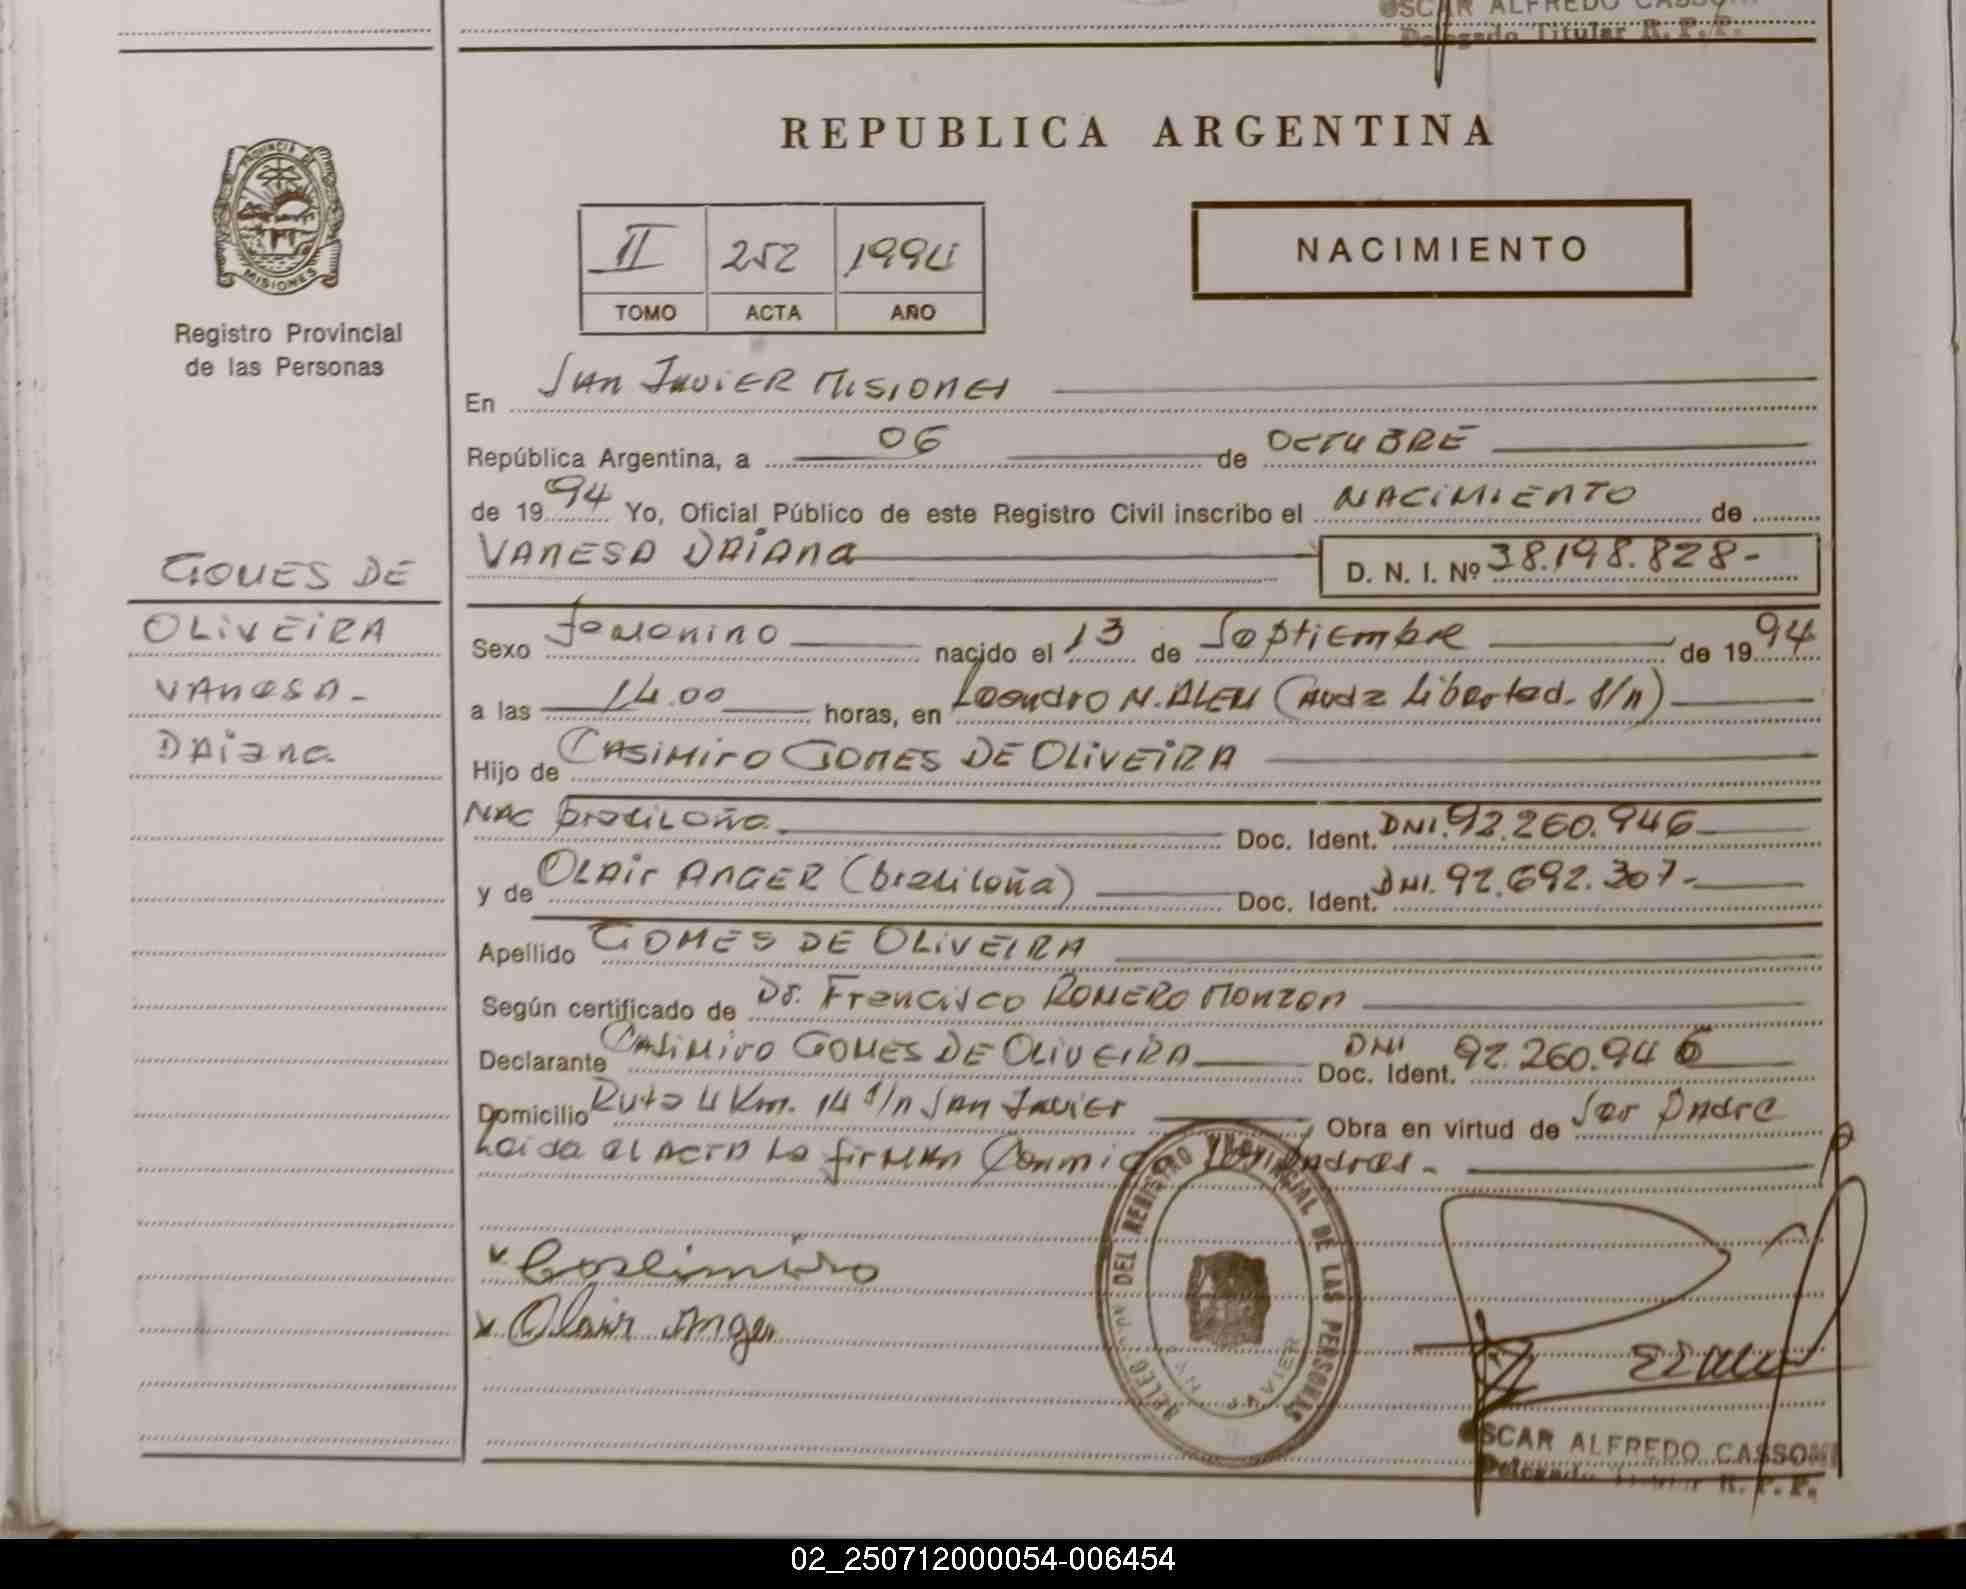 OSCAR ALFREDO CASSONI
Delegado Titular R. P. P.
REPUBLICA ARGENTINA
PROVINCIA DE
MISIONES
Registro Provincial
de las Personas
II 252 1994
TOMO ACTA AÑO
NACIMIENTO
En SAN JAVIER MISIONES
República Argentina, a 06 de OCTUBRE
de 1994 Yo, Oficial Público de este Registro Civil inscribo el NACIMIENTO de
VANESA DAIANA D. N. I. Nº 38.198.828-
GOMES DE
OLIVEIRA
VANESA-
DAIANA
Sexo Femenino nacido el 13 de Septiembre de 1994
a las 14.00 horas, en Leandro N. ALEM (Avda Libertad. S/n)
Hijo de CASIMIRO GOMES DE OLIVEIRA
NAC brasileña Doc. Ident. DNI. 92.260.946
y de OLAIR ANGER (brasileña) Doc. Ident. DNI. 92.692.307-
Apellido GOMES DE OLIVEIRA
Según certificado de Dr. Francisco ROMERO MONZON
Declarante CASIMIRO GOMES DE OLIVEIRA Doc. Ident. DNI 92.260.946
Domicilio Ruta 4 Km. 14 S/n SAN Javier Obra en virtud de Ser Padre
Leida el ACTA La firMAN Conmigo los padres.-
Olair Anger
DELEGACION DEL REGISTRO PROVINCIAL DE LAS PERSONAS
SAN JAVIER
OSCAR ALFREDO CASSONI
Delegado Titular R. P. P.
02_250712000054-006454